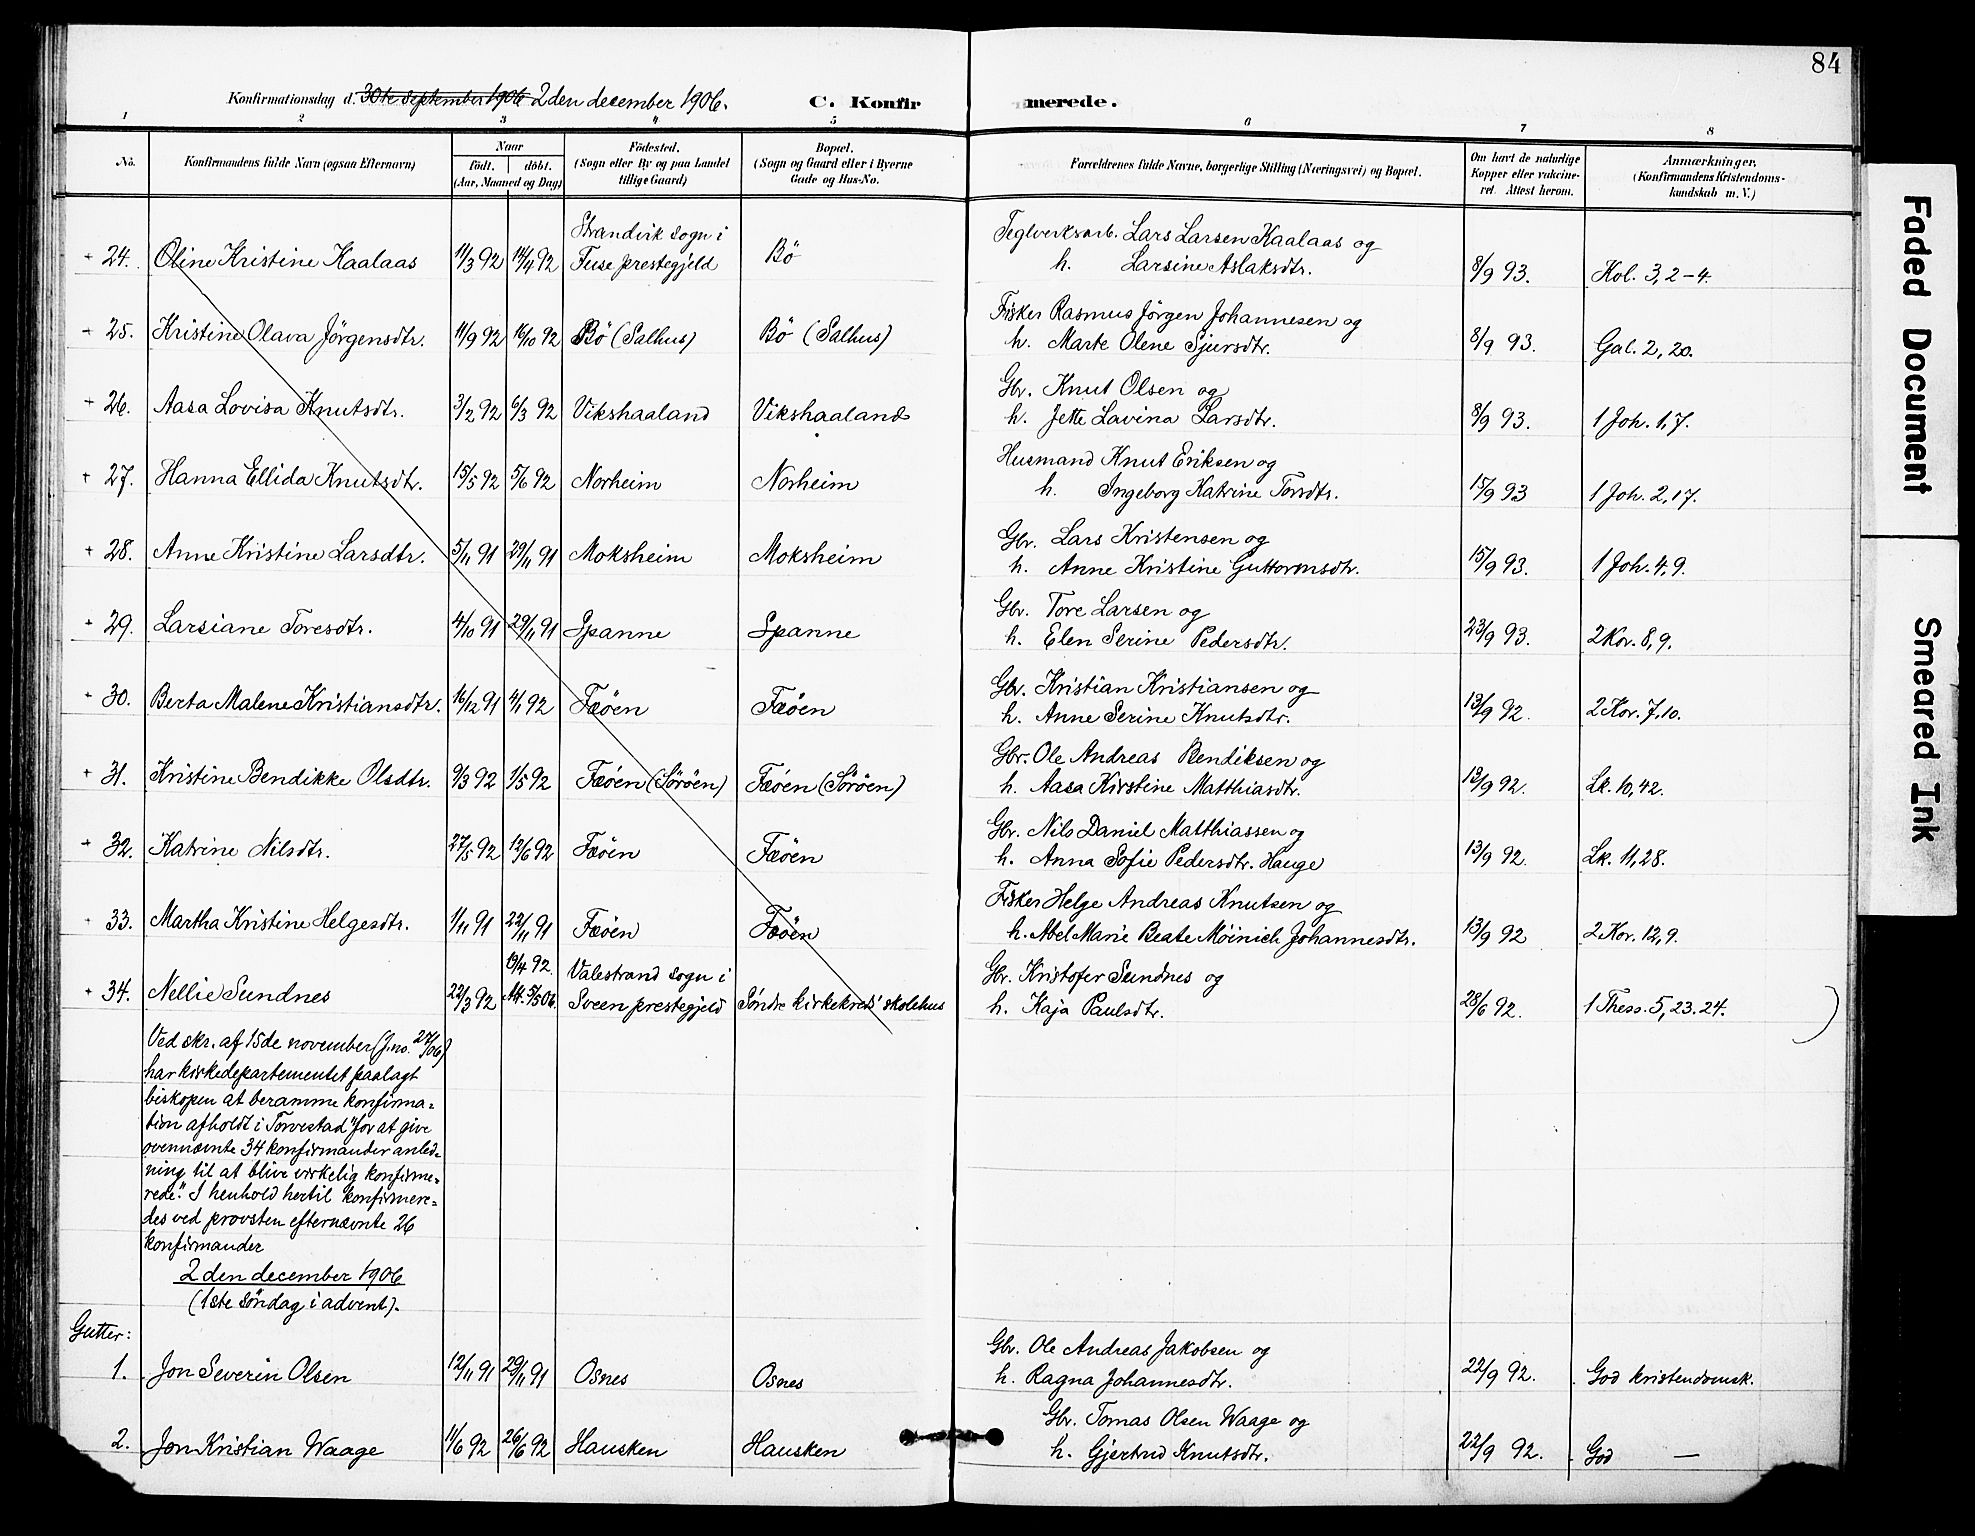 84
Konfirmationsdag d. 30te september 1906 2den december 1906. C. Konfirmerede.
1 2 3 4 5 6 7 8
No. Konfirmandens fulde Navn (ogsaa Efternavn) Naar født. døbt. (Aar, Maaned og Dag) Födested. (Sogn eller By og paa Landet tillige Gaard) Bopæl. (Sogn og Gaard eller i Byerne Gade og Hus-No. Forældrenes fulde Navne, borgerlige Stilling (Næringsvei) og Bopæl. Om havt de naturlige Kopper eller vakcineret. Attest herom. Anmærkninger. (Konfirmandens Kristendomskundskab m. V.)
Strandvik sogn i Teglverksarb. Lars Larsen Kaalaas og
+ 24. Oline Kristine Kaalaas 11/3 92 14/4 92 Fuse prestegjeld Bö h. Larsine Aslaksdtr. 8/9 93. Kol. 3, 2-4.
Fisker Rasmus Jörgen Johannesen og
+ 25. Kristine Olava Jörgensdtr. 11/9 92 16/10 92 Bö (Salhus) Bö (Salhus) h. Marte Olene Sjursdtr. 8/9 93. Gal. 2, 20.
Gbr. Knut Olsen og
+ 26. Aasa Lovisa Knutsdtr. 3/2 92 6/3 92 Vikshaaland Vikshaaland h. Jette Lavina Larsdtr. 8/9 93. 1 Joh. 1,7.
Husmand Knut Eriksen og
+ 27. Hanna Ellida Knutsdtr. 15/5 92 5/6 92 Norheim Norheim h. Ingeborg Katrine Torsdtr. 15/9 93 1 Joh. 2, 17.
Gbr. Lars Kristensen og
+ 28. Anne Kristine Larsdtr. 5/11 91 29/11 91 Moksheim Moksheim h. Anne Kristine Guttormsdtr. 15/9 93. 1 Joh. 4, 9.
Gbr. Tore Larsen og
+ 29. Larsiane Toresdtr. 4/10 91 29/11 91 Spanne Spanne h. Elen Serine Pedersdtr. 23/9 93. 2 Kor. 8, 9.
Gbr. Kristian Kristiansen og
+ 30. Berta Malene Kristiansdtr. 16/12 91 4/1 92 Fæöen Fæöen h. Anne Serine Knutsdtr. 13/9 92. 2 Kor. 7, 10.
Gbr. Ole Andreas Bendiksen og
+ 31. Kristine Bendikke Olsdtr. 9/3 92 1/5 92 Fæöen (Söröen) Fæöen (Söröen) h. Aasa Kirstine Matthiasdtr. 13/9 92. Lk. 10, 42.
Gbr. Nils Daniel Matthiassen og
+ 32. Katrine Nilsdtr. 27/5 92 12/6 92 Fæöen Fæöen h. Anna Sofie Pedersdtr. Hauge 13/9 92. Lk. 11, 28.
Fisker Helge Andreas Knutsen og
+ 33. Martha Kristine Helgesdtr. 1/11 91 22/11 91 Fæöen Fæöen h. Abel Marie Beate Möinich Johannesdtr. 13/9 92 2 Kor. 12, 9.
19/4 92. Valestrand sogn i Gbr. Kristofer Sundnes og
+ 34. Nellie Sundnes 22/3 92 Att. 5/5 06. Sveen prestegjeld Söndre kirkekreds' skolehus h. Kaja Paulsdtr. 28/6 92. 1 Thess. 5, 23. 24.
Ved skr. af 15de november (J.no. 27/06)
har kirkedepartementet paalagt
biskopen at beramme konfirma=
tion afholdt i Torvestad "for at give
ovennævnte 34 konfirmander anled=
ning til at blive virkelig konfirme=
rede." I henhold hertil konfirmere=
des ved provsten efternævnte 26
konfirmander
2den december 1906
(1ste söndag i advent).
Gutter:
Gbr. Ole Andreas Jakobsen og
1. Jon Severin Olsen 12/11 91 29/11 91 Osnes Osnes h. Ragna Johannesdtr. 22/9 92. God kristendomsk.
Gbr. Tomas Olsen Waage og
2. Jon Kristian Waage 11/6 92 26/6 92 Hausken Hausken h. Gjertrud Knutsdtr. 22/9 92. God —
Faded Document
Smeared Ink